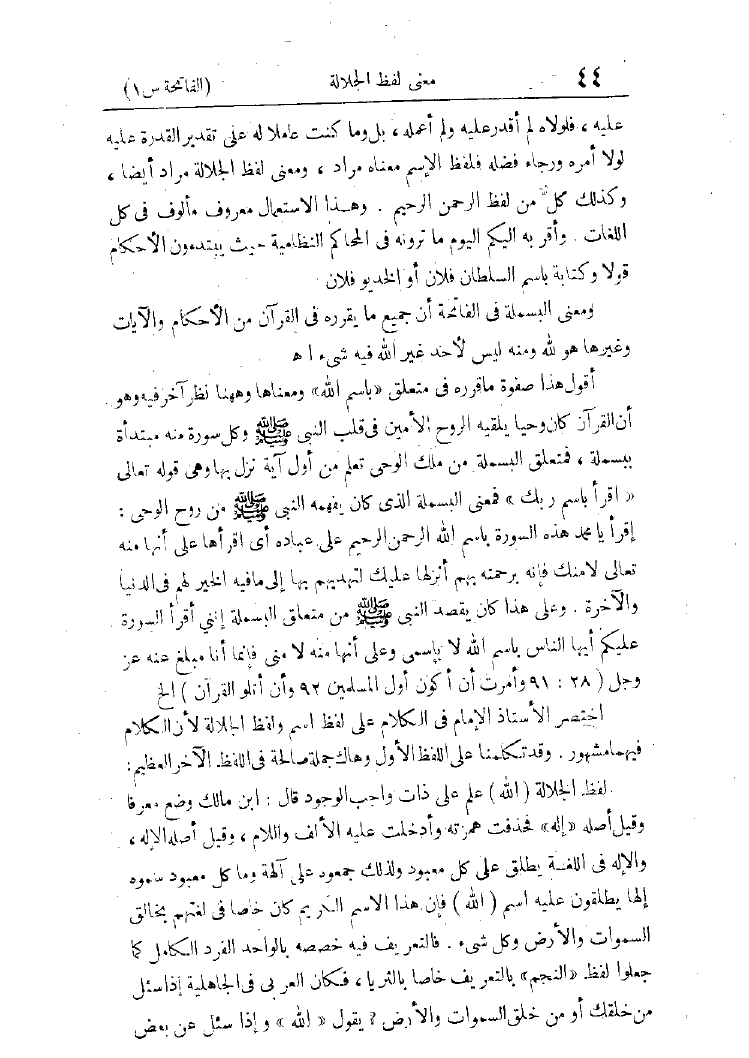 ٤٤ معنى لفظ الجلالة (الفاتحة س ١)
عليه ، فلولاه لم أقدر عليه ولم أعمله ، بل وما كنت عاملا له على تقدير القدرة عليه
لولا أمره ورجاء فضله فلفظ الإسم معناه مراد ، ومعنى لفظ الجلالة مراد أيضا ،
وكذلك كل من لفظ الرحمن الرحيم . وهذا الاستعمال معروف مألوف فى كل
اللغات . وأقر به اليكم اليوم ما ترونه فى المحاكم النظامية حيث يبتدءون الأحكام
قولا وكتابة باسم السلطان فلان أو الخديو فلان
ومعنى البسملة فى الفاتحة أن جميع ما يقرره فى القرآن من الأحكام والآيات
وغيرها هو لله ومنه ليس لأحد غير الله فيه شىء ا ه
أقول هذا صفوة ماقرره فى متعلق «باسم الله» ومعناها وههنا نظر آخر فيه وهو
أن القرآن كان وحيا يلقيه الروح الأمين فى قلب النبى ﷺ وكل سورة منه مبتدأة
ببسملة ، فمتعلق البسملة من ملك الوحى تعلم من أول آية نزل بها وهى قوله تعالى
« اقرأ باسم ربك » فمعنى البسملة الذى كان يفهمه النبى ﷺ من روح الوحى :
إقرأ يا محمد هذه السورة باسم الله الرحمن الرحيم على عباده أى اقرأها على أنها منه
تعالى لامنك فإنه برحمته بهم أنزلها عليك لتهديهم بها إلى مافيه الخير لهم فى الدنيا
والآخرة . وعلى هذا كان يقصد النبى ﷺ من متعلق البسملة إننى أقرأ السورة
عليكم أيها الناس باسم الله لا بإسمى وعلى أنها منه لا منى فإنما أنا مبلغ عنه عز
وجل ( ٢٨ : ٩١ وأمرت أن أكون أول المسلمين ٩٢ وأن أتلو القرآن ) الخ
اختصر الأستاذ الإمام فى الكلام على لفظ اسم ولفظ الجلالة لأن الكلام
فيهما مشهور . وقد تكلمنا على اللفظ الأول وهاك جملة صالحة فى اللفظ الآخر العظيم :
لفظ الجلالة ( الله ) علم على ذات واجب الوجود قال : ابن مالك وضع معرفا
وقيل أصله «إله» فحذفت همزته وأدخلت عليه الألف واللام ، وقيل أصله الإله ،
والإله فى اللغة يطلق على كل معبود ولذلك جمعوه على آلهة وما كل معبود سموه
إلها يطلقون عليه اسم ( الله ) فإن هذا الاسم الكريم كان خاصا فى لغتهم بخالق
السموات والأرض وكل شىء . فالتعريف فيه خصصه بالواحد الفرد الكامل كما
جعلوا لفظ «النجم» بالتعريف خاصا بالثريا ، فكان العربى فى الجاهلية إذا سئل
من خلقك أو من خلق السموات والأرض ؟ يقول « الله » وإذا سئل عن بعض